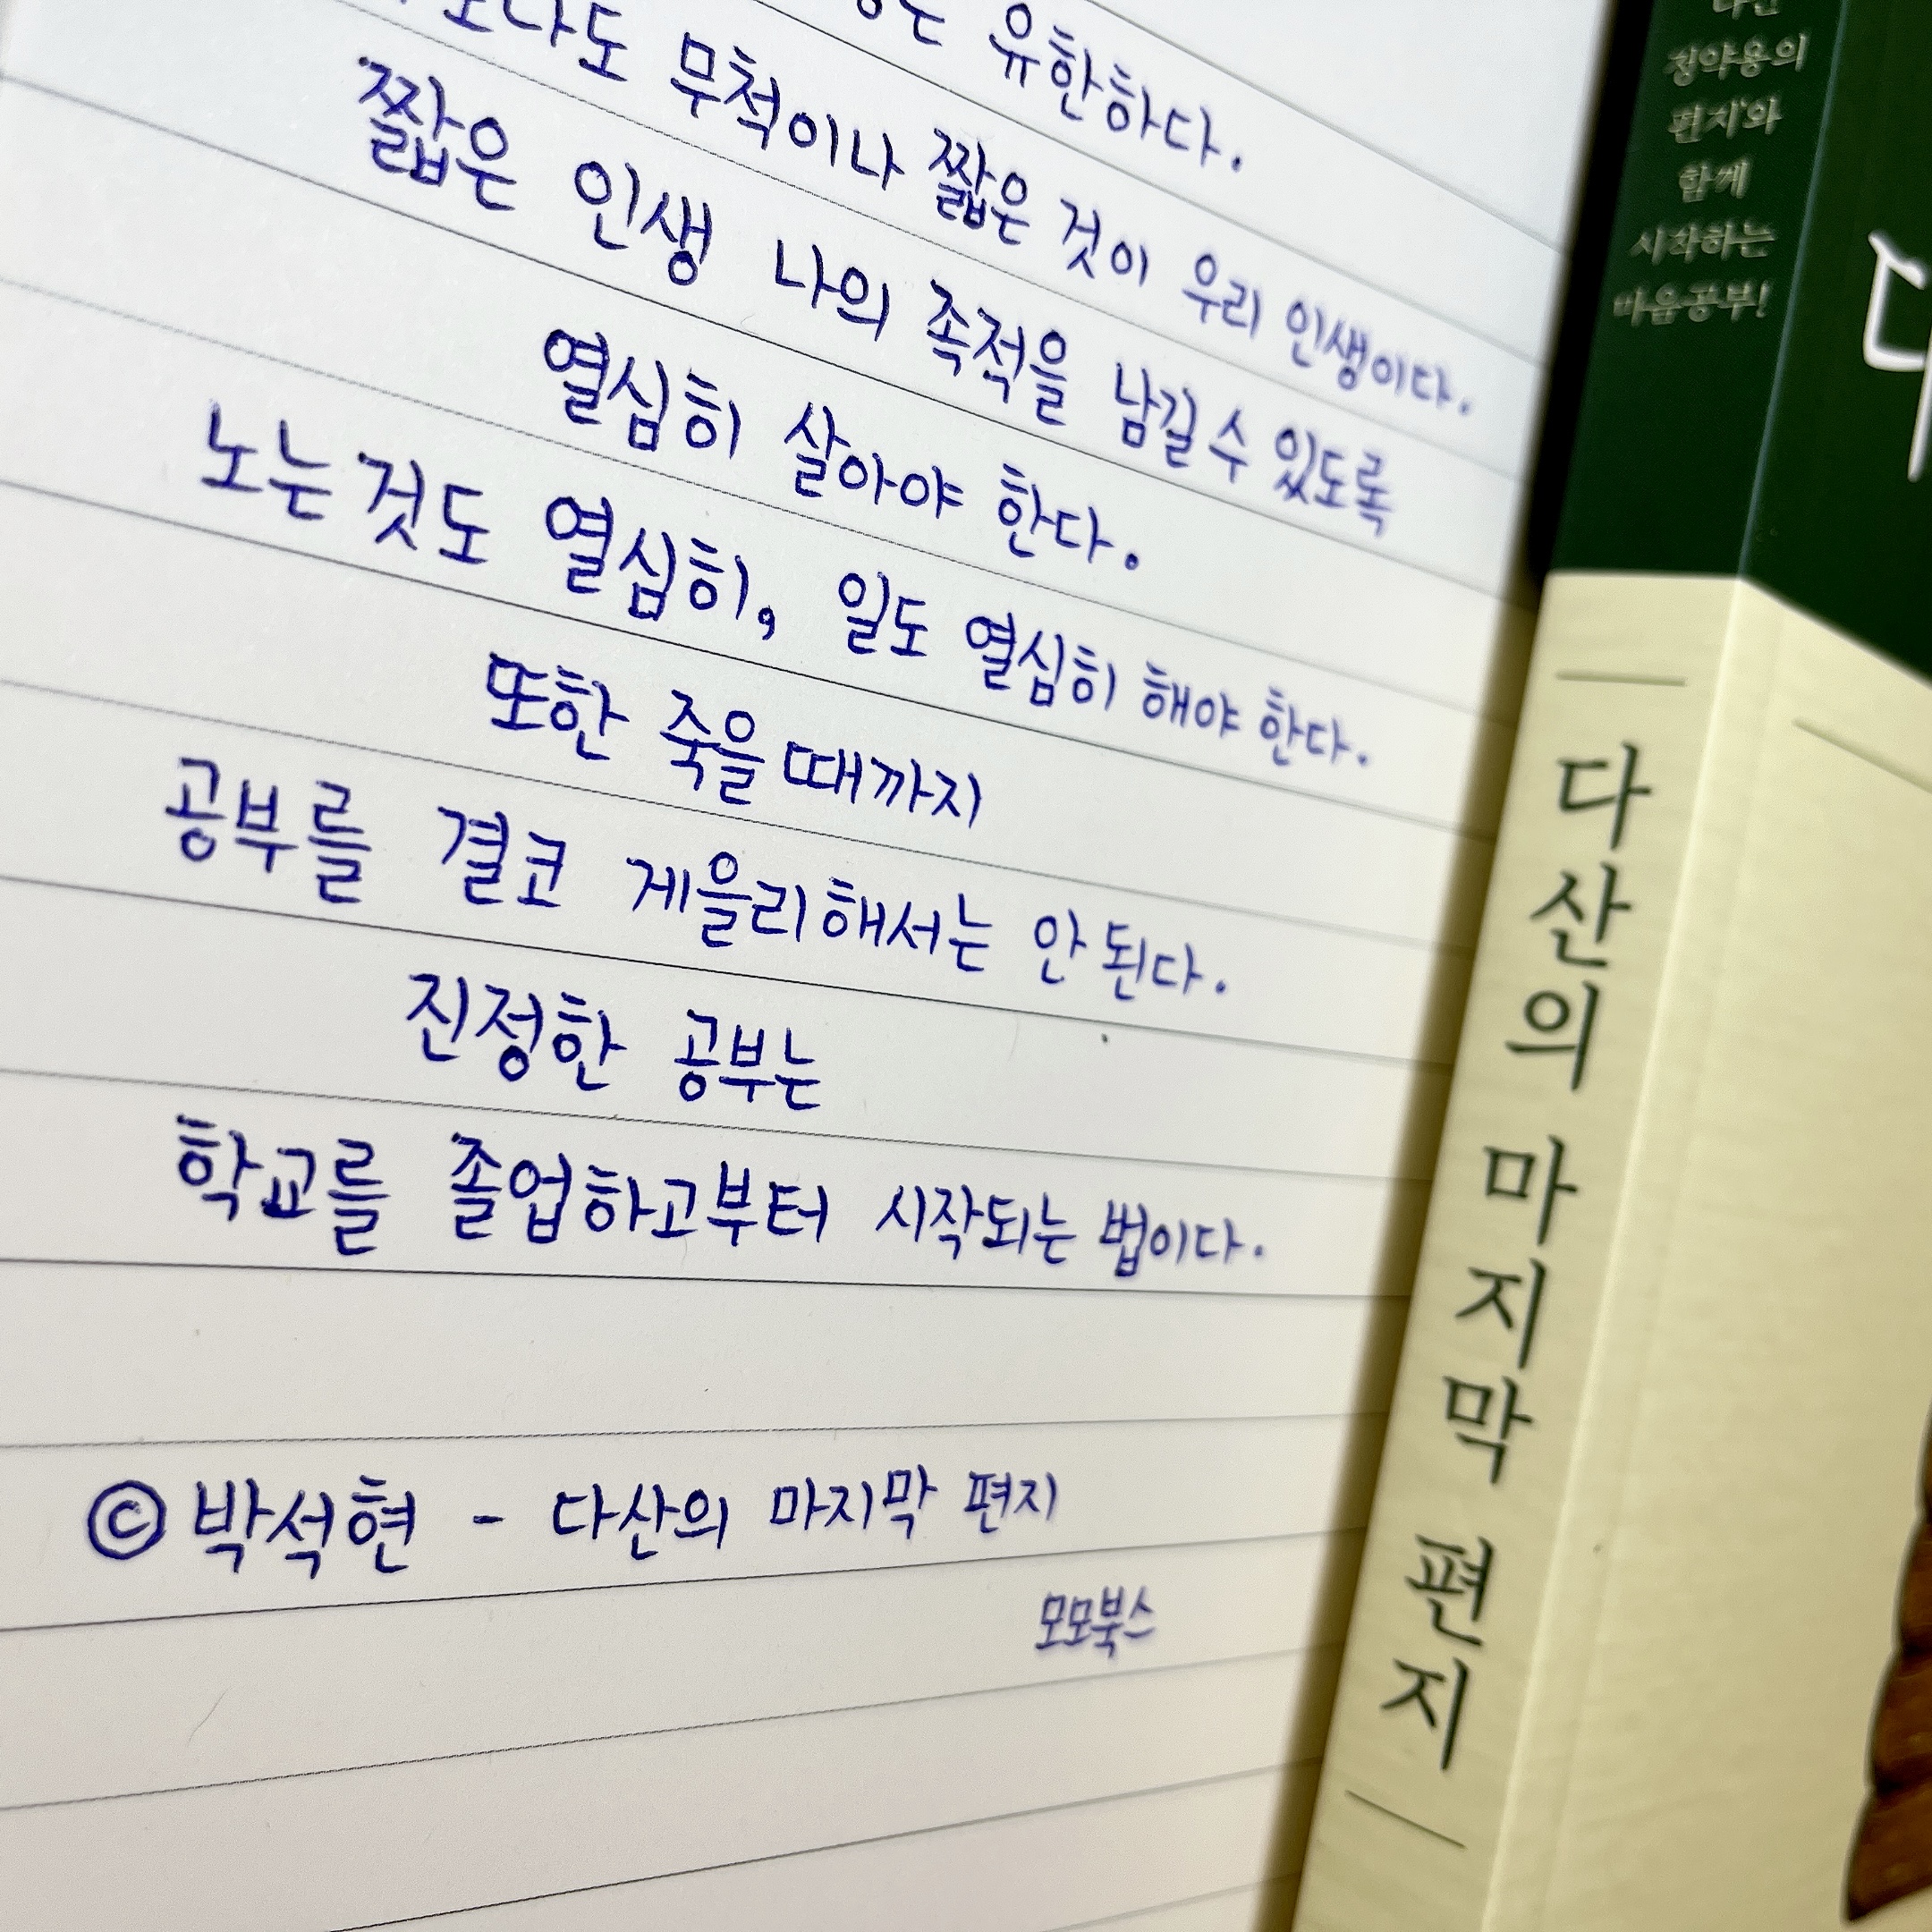 유한하다.
무척이나 짧은 것이 우리 인생이다.
짧은 인생 나의 족적을 남길 수 있도록
열심히 살아야 한다.
노는 것도 열심히, 일도 열심히 해야 한다.
또한 죽을 때까지
공부를 결코 게을리해서는 안 된다.
진정한 공부는
학교를 졸업하고부터 시작되는 법이다.
© 박석현 - 다산의 마지막 편지
모모북스
정약용의
편지와
함께
시작하는
마음공부!
다산의 마지막 편지